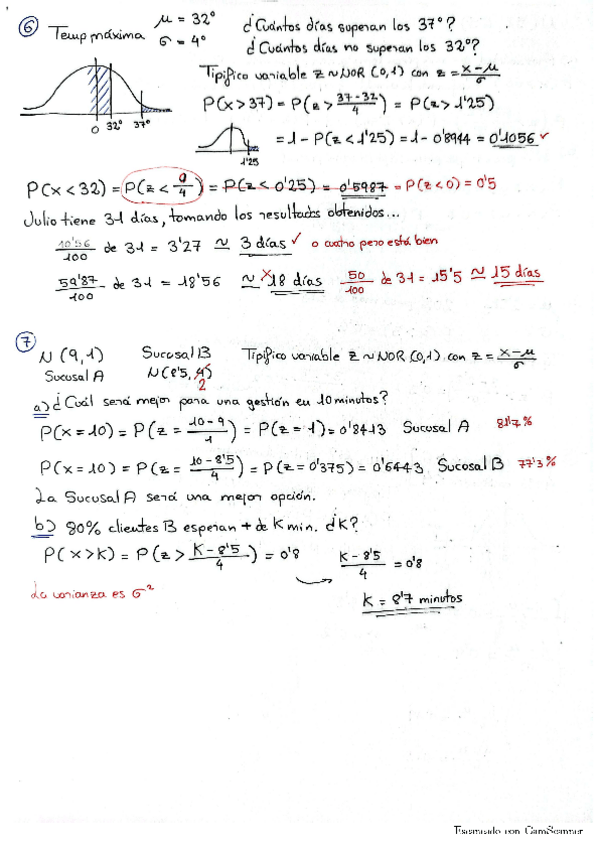 6 Temp máxima μ = 32° σ = 4° ¿Cuántos días superan los 37°?
¿Cuántos días no superan los 32°?
Tipifico variable z ~ NOR (0,1) con z = x-μ/σ
0 32° 37°
P(x > 37) = P(z > 37-32/4) = P(z > 1'25)
1'25
= 1 - P(z < 1'25) = 1 - 0'8944 = 0'1056 ✓
P(x < 32) = P(z < 0/4) = P(z < 0'25) = 0'5987 = P(z < 0) = 0'5
Julio tiene 31 días, tomando los resultados obtenidos...
10'56/100 de 31 = 3'27 ≈ 3 días ✓ o cuatro pero está bien
59'87/100 de 31 = 18'56 ≈ x 18 días 50/100 de 31 = 15'5 ≈ 15 días
7
N (9,1) Sucusal B Tipifico variable z ~ NOR (0,1) con z = x-μ/σ
Sucusal A N(8'5, 4) 2
a) ¿Cuál será mejor para una gestión en 10 minutos?
P(x = 10) = P(z = 10-9/1) = P(z = 1) = 0'8413 Sucusal A 81'7%
P(x = 10) = P(z = 10-8'5/4) = P(z = 0'375) = 0'6443 Sucosal B 77'3%
La Sucusal A será una mejor opción.
b) 80% clientes B esperan + de K min. ¿K?
P(x > K) = P(z > K-8'5/4) = 0'8
K-8'5/4 = 0'8
La varianza es σ²
K = 8'7 minutos
Escaneado con CamScanner